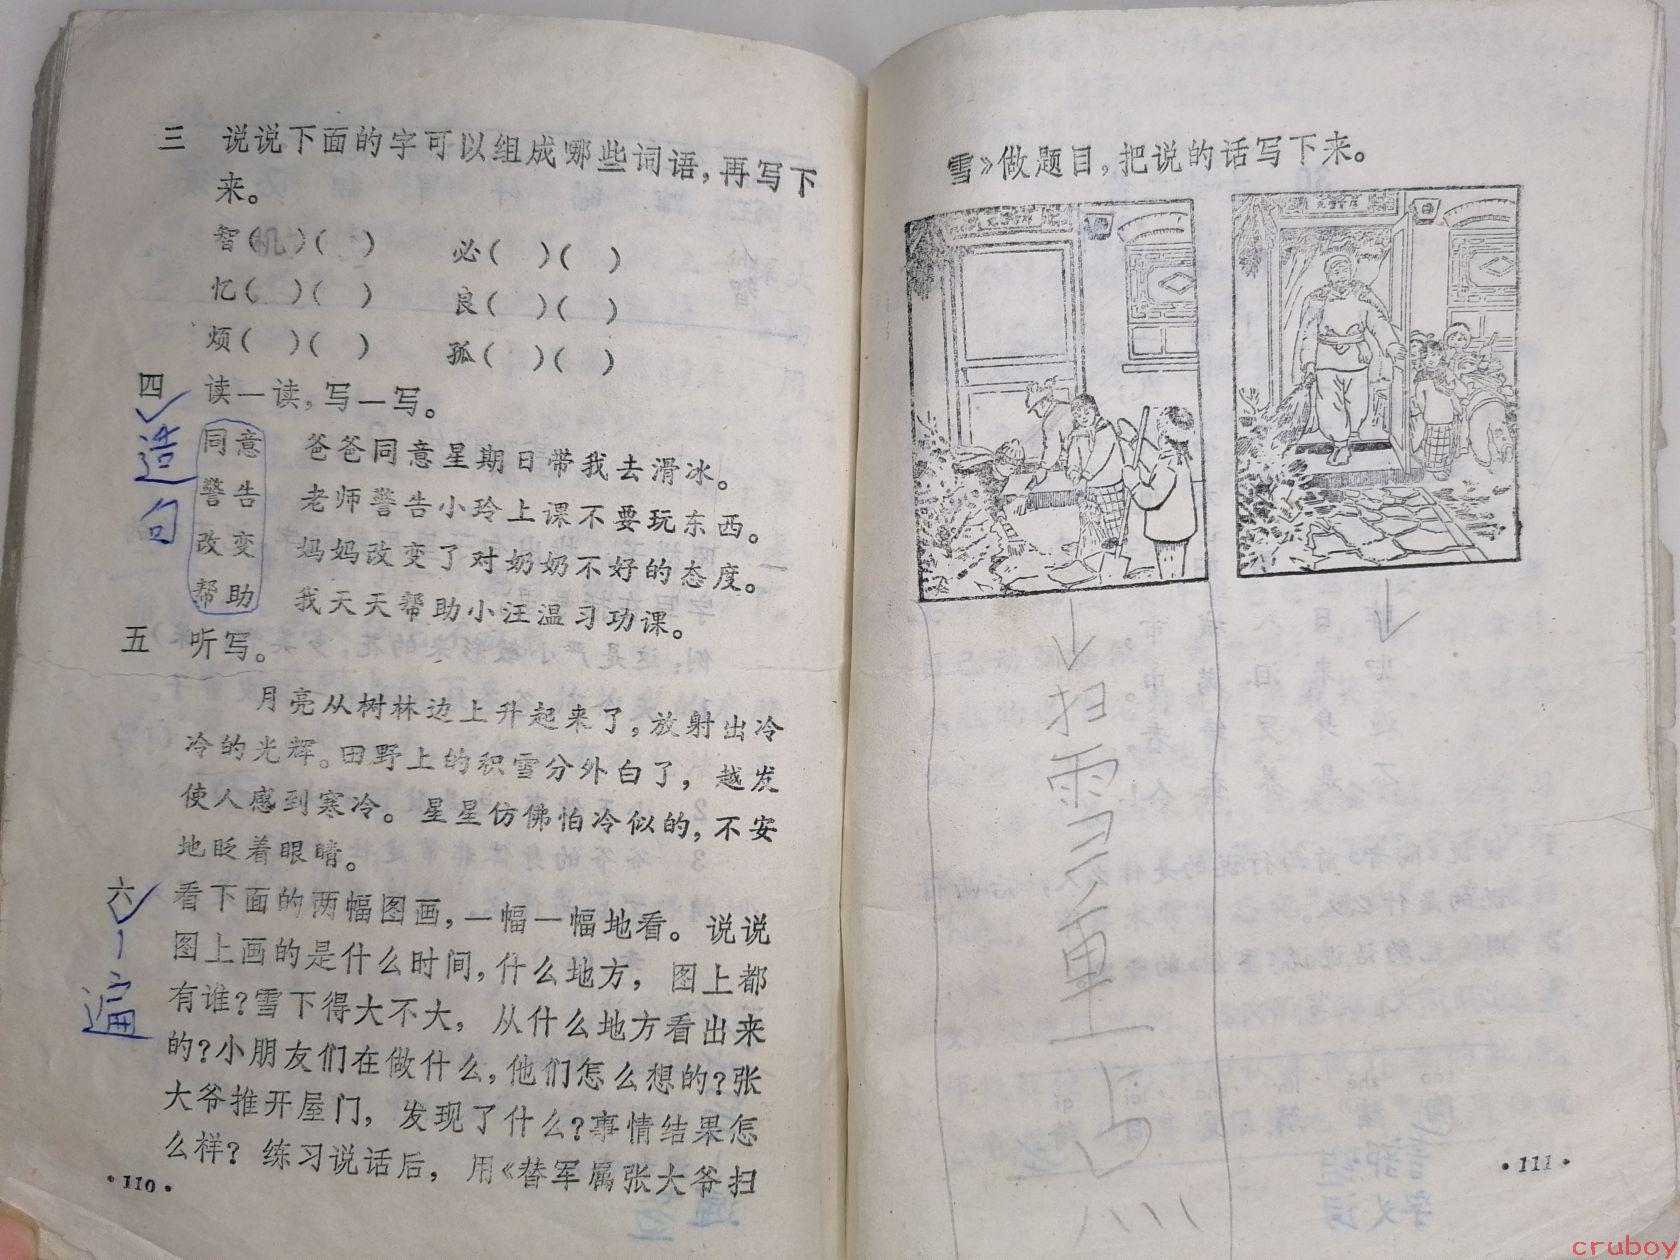 三 说说下面的字可以组成哪些词语，再写下
来。
智(机)( ) 必( )( )
忆( )( ) 良( )( )
烦( )( ) 孤( )( )
四 读一读，写一写。
造句
同意 爸爸同意星期日带我去滑冰。
警告 老师警告小玲上课不要玩东西。
改变 妈妈改变了对奶奶不好的态度。
帮助 我天天帮助小汪温习功课。
五 听写。
月亮从树林边上升起来了，放射出冷
冷的光辉。田野上的积雪分外白了，越发
使人感到寒冷。星星仿佛怕冷似的，不安
地眨着眼睛。
六 看下面的两幅图画，一幅一幅地看。说说
图上画的是什么时间，什么地方，图上都
有谁？雪下得大不大，从什么地方看出来
的？小朋友们在做什么，他们怎么想的？张
大爷推开屋门，发现了什么？事情结果怎
么样？练习说话后，用《替军属张大爷扫
一遍
·110·
雪》做题目，把说的话写下来。
扫
雪
重
点
·111·
cruboy